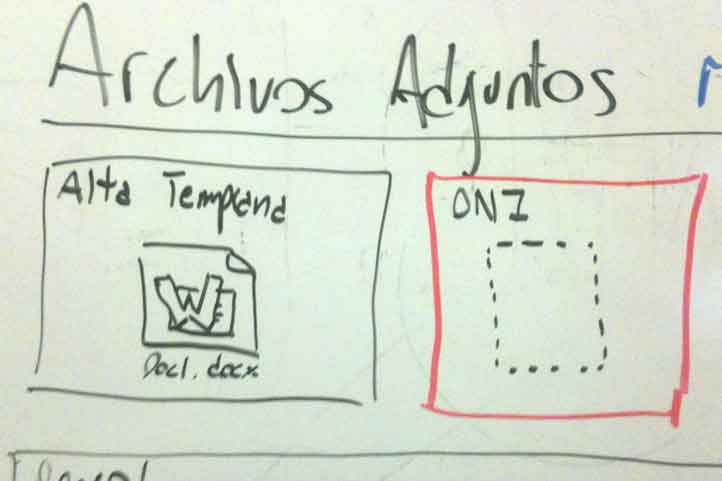 Archivos Adjuntos
Alta Temprana
DNI
W
Doc1.docx